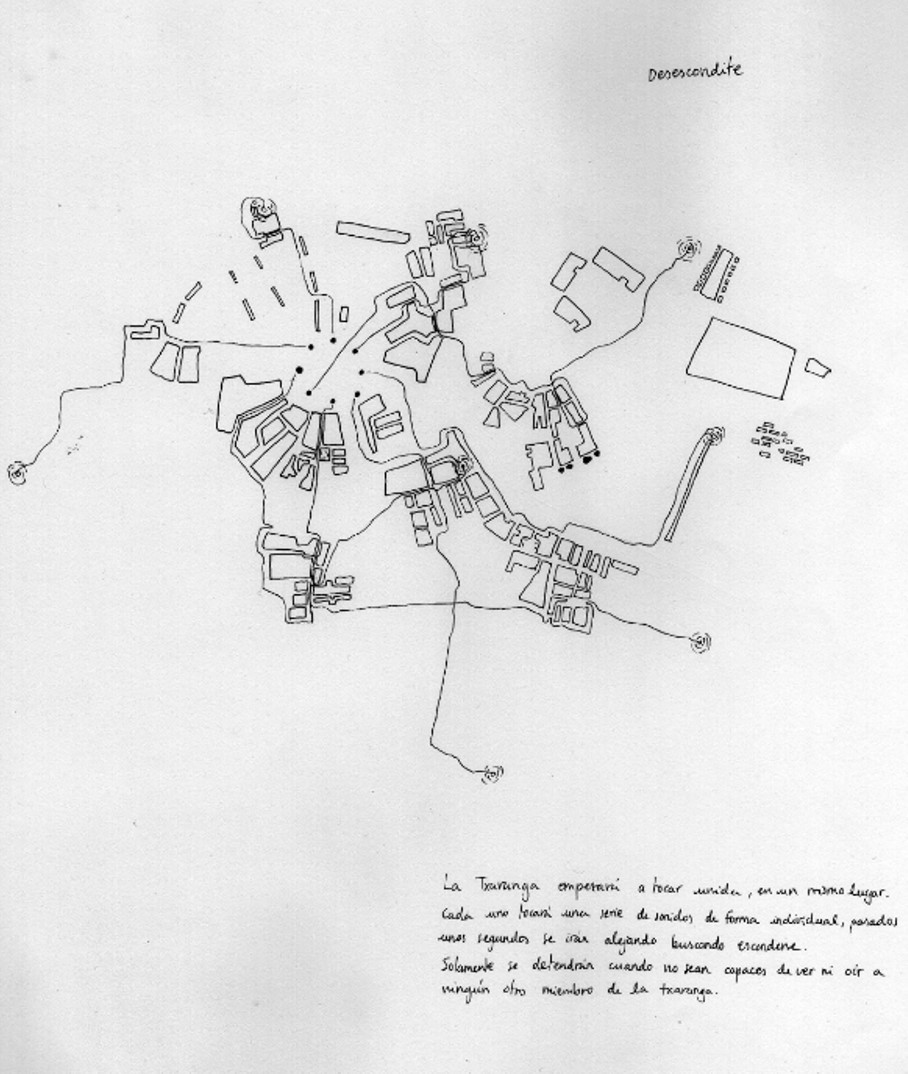 Desescondite
La Txaranga empezará a tocar unida, en un mismo lugar.
Cada uno tocará una serie de sonidos de forma individual, pasados
unos segundos se irán alejando buscando esconderse.
Solamente se detendrán cuando no sean capaces de ver ni oír a
ningún otro miembro de la txaranga.